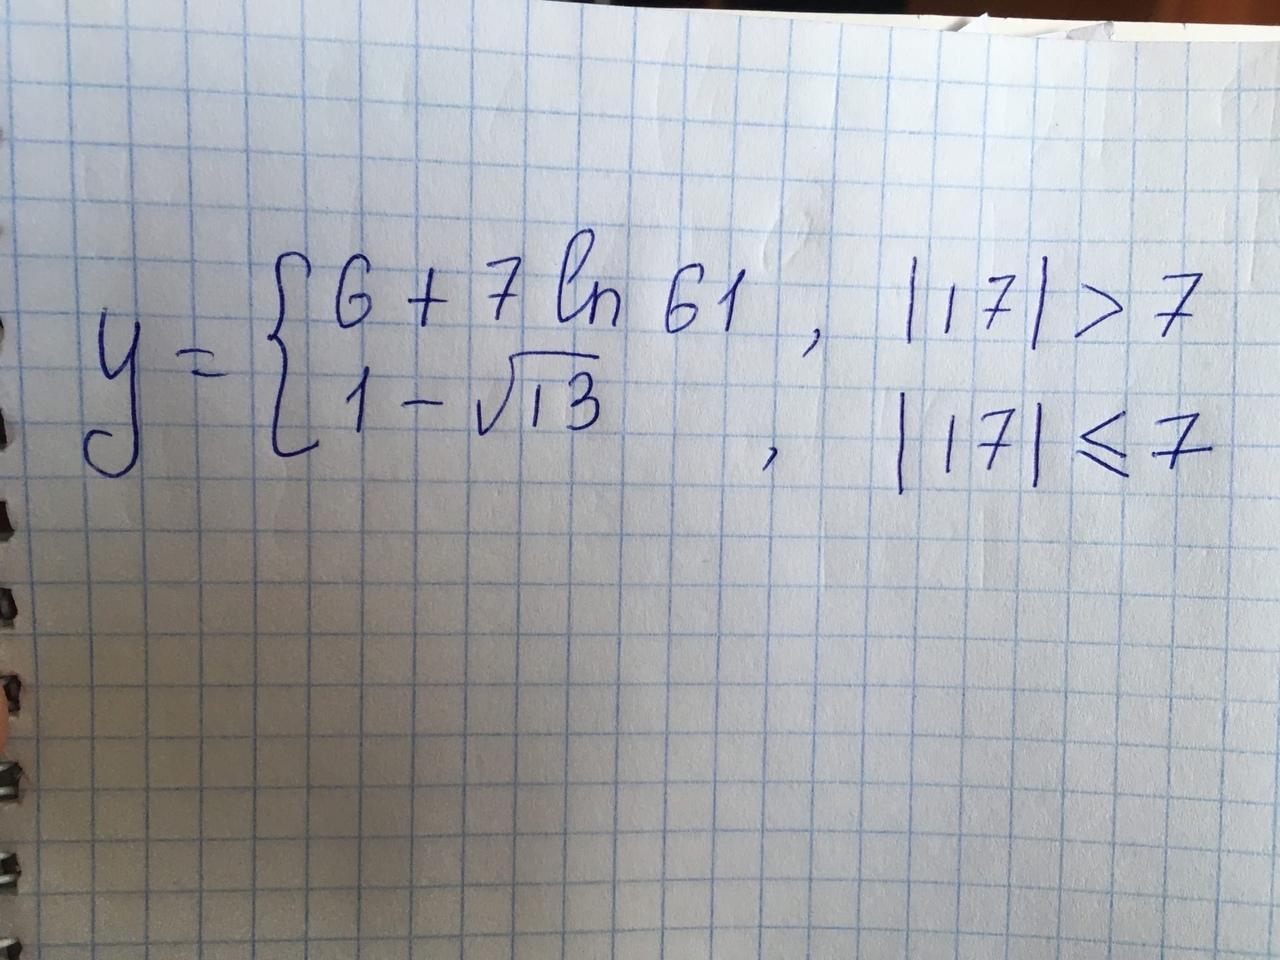 y = { 6 + 7 ln 61 , |17| > 7
1 - √13 , |17| ⩽ 7